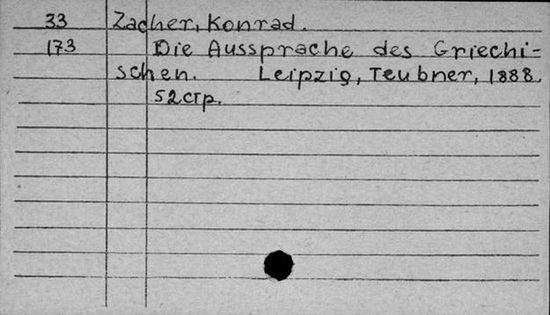 33 Zacher, Konrad.
173 Die Aussprache des Griechi-
schen. Leipzig, Teubner, 1888.
52 стр.